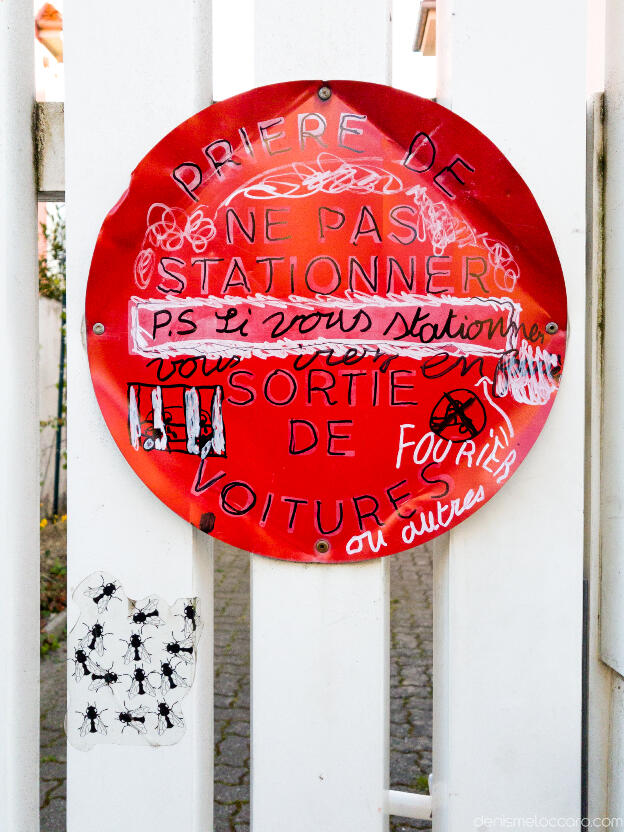 PRIERE DE
NE PAS
STATIONNER
P.S Si vous stationnez
vous irez en
SORTIE
DE
VOITURES
FOURIÈR
ou autres
denismeloccaro.com